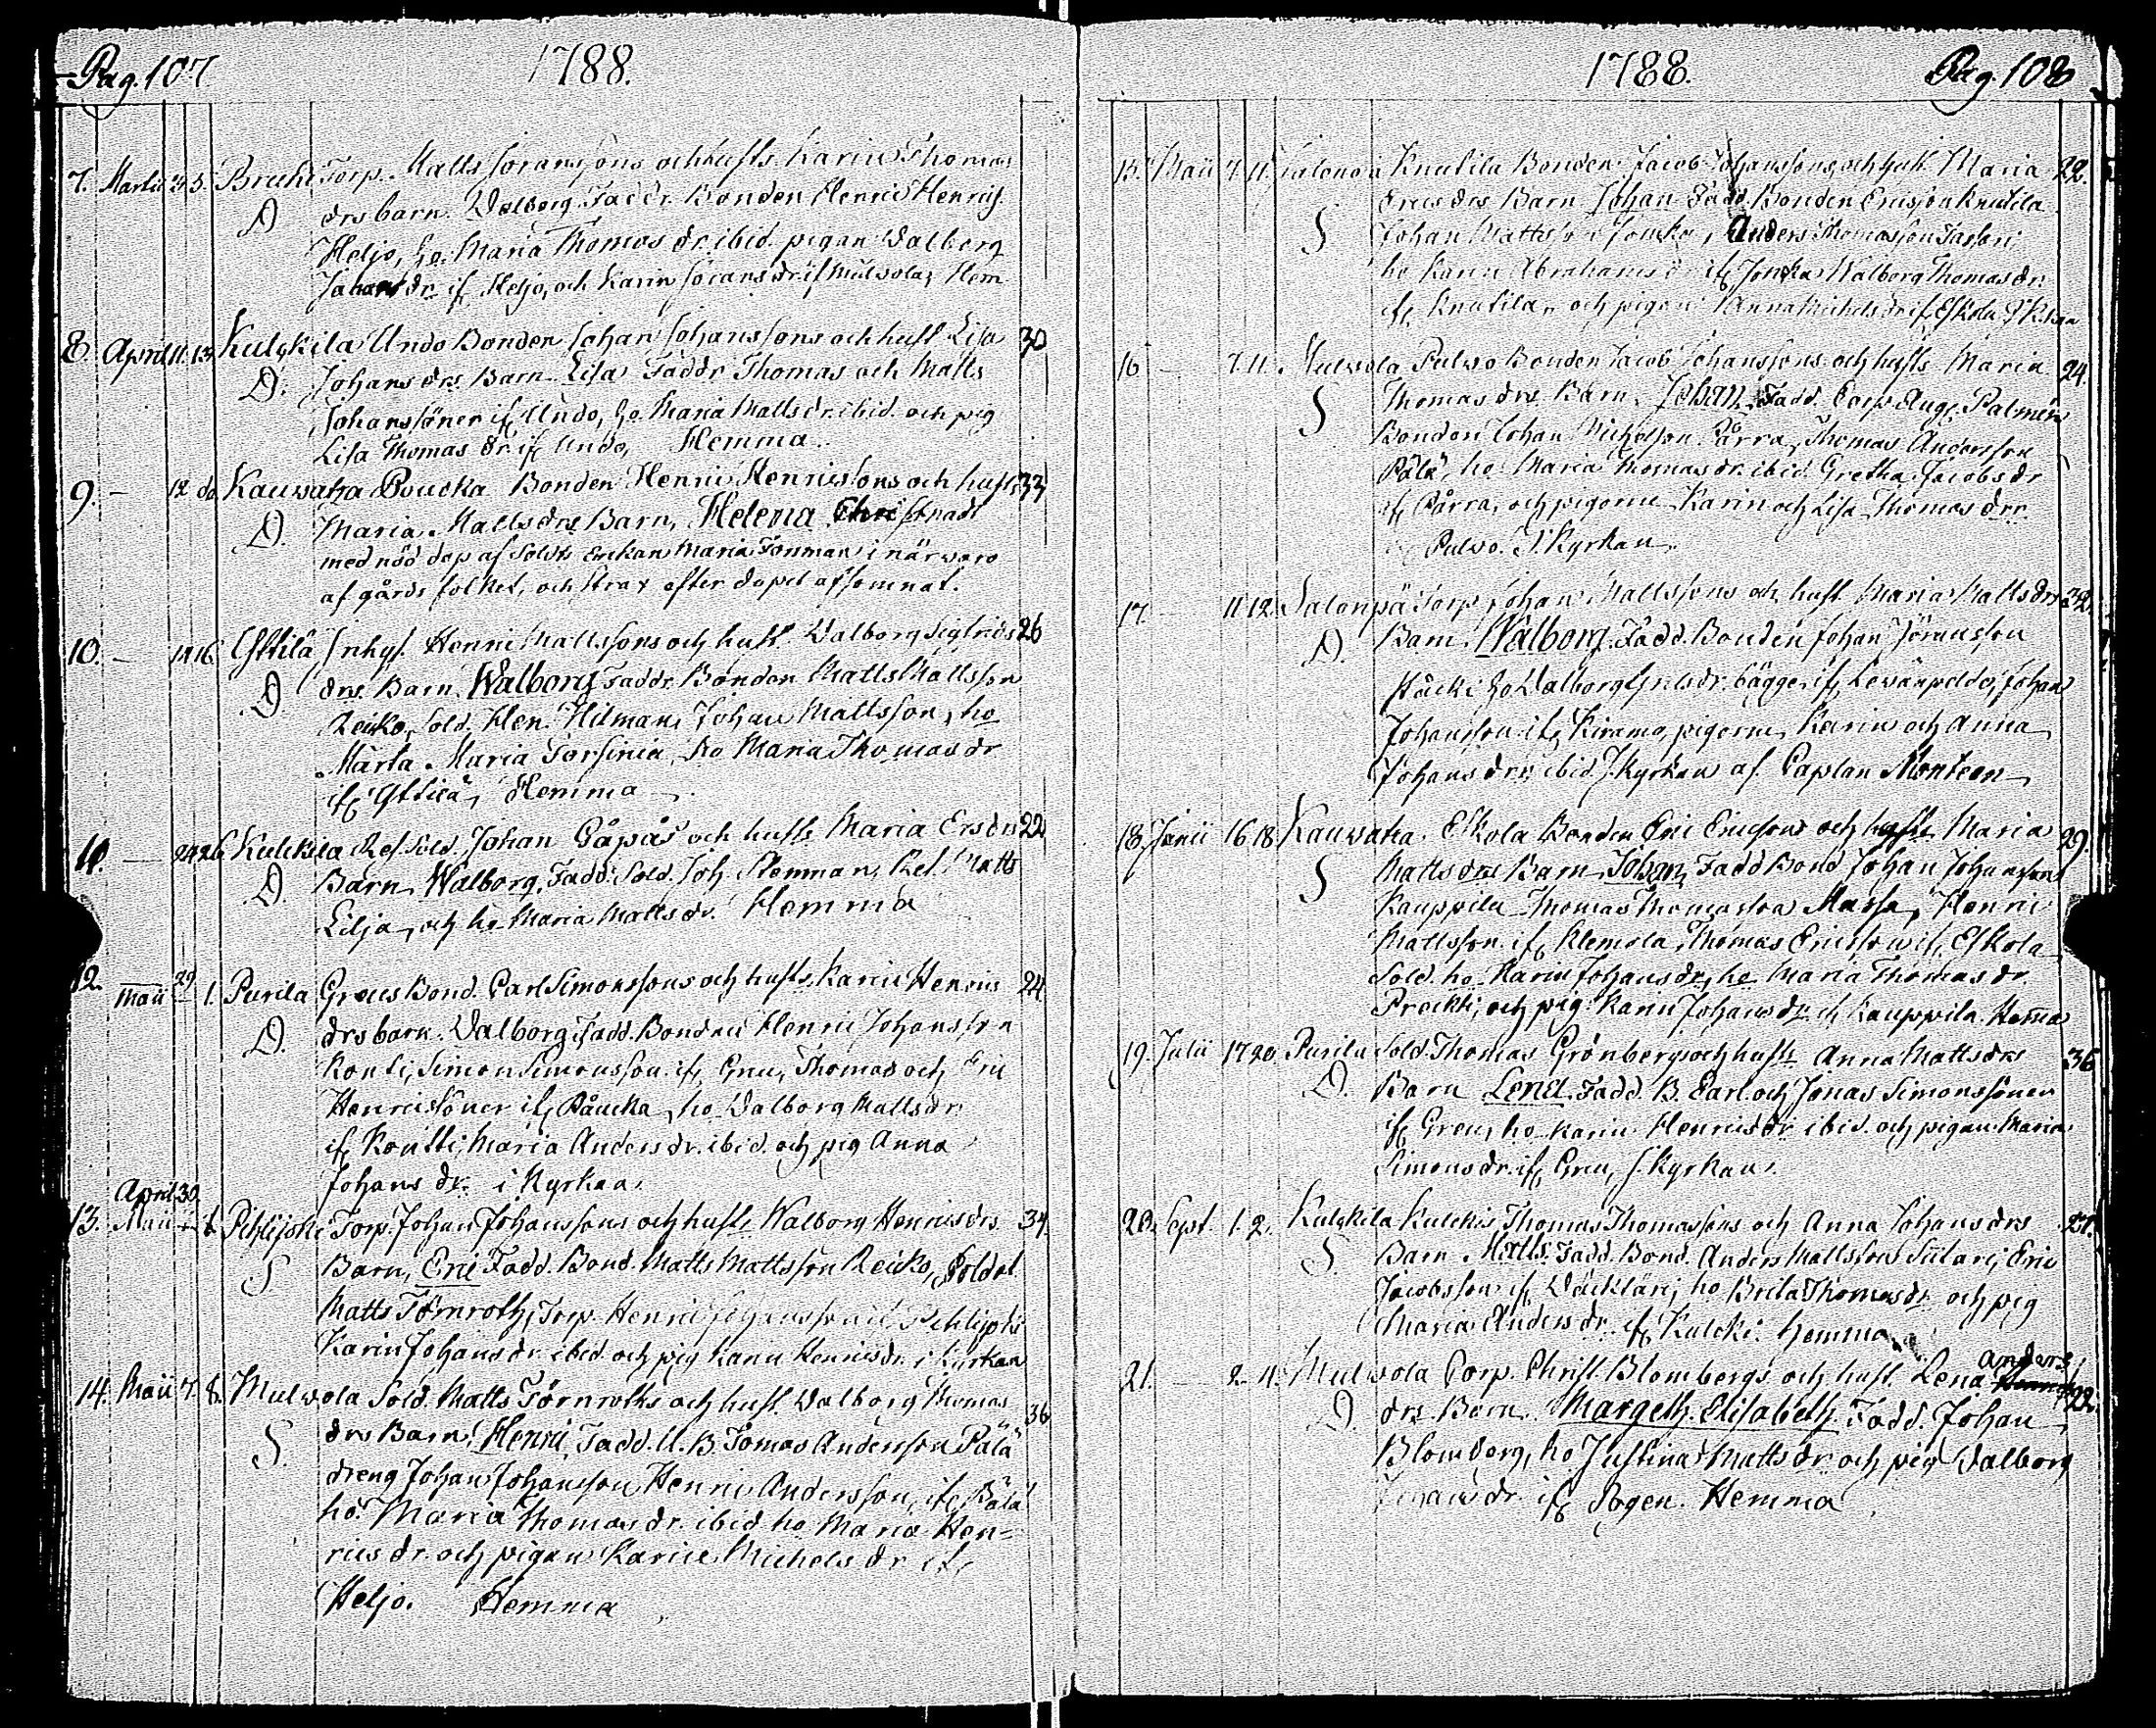 Pag. 107
1788.
7. Martii 2. 3. Bruhi Torp. Matts Joranssons och hust. Karin Thomas
D drs barn. Walborg Faddr. Bonden Henric Henrics.
Heljo, ho. Maria Thomas dr. ibid. pigan Walborg
Johans dr if Heljo, och Karin Jorans dr. if Mulvola, Hem
8. April 11. 13. Kulckila Undo Bonden Johan Johanssons och hust Lisa 30
D. Johans drs. Barn Lisa Faddr Thomas och Matts
Johanssöner if Undo, ho. Maria Matts dr. ibid. och pig
Lisa Thomas dr. if Undo, Hemma.
9. – 12 do Kauvaha Poucka Bonden Henric Henricssons och hust. 33
D. Maria Matts drs Barn, Helena Christnadt
med nöd dop af Solds Enkan Maria Fonman i närwaro
af gårds folket, och strax efter dopet afsomnat.
10. – 14 16. Yttilä Inhys. Henric Mattssons och hust. Walborg Sigfrids 26
D drs. Barn, Walborg Faddr. Bonden Matts Mattsson
Reiko, Sold. Hen. Hilman, Johan Mattsson, ho
Märta Maria Forsinia, ho Maria Thomas dr
if Yttilä, Hemma
11. – 24 26. Kulckila Ref. Sold. Johan Gåpås och hust. Maria Ers drs 22
D. Barn, Walborg, Fadd. Sold. Joh. Stenman, Ref. Matts
Lilja, och ho Maria Matts dr. Hemma
12. Maii 29 1. Purila Greus Bond. Carl Simonssons och hust. Karin Henrics 24
D. drs barn. Walborg Fadd. Bonden Henric Johansson
Konti, Simon Simonsson if Greu, Thomas och Eric
Henricssöner if Påucka, ho Walborg Matts dr
if Kontti, Maria Anders dr. ibid. och pig Anna
Johans dr. i Kyrkan.
April 30
13. Maii 6. Pehlijoki Torp. Johan Johanssons och hust. Walborg Henrics drs 34.
S Barn, Eric Fadd. Bond. Matts Mattsson Reiko, Soldat
Matts Törnroth, Torp. Henric Johansson if Pehlijoki
Karin Johans dr. ibid. och pig Karin Henrics dr. i Kyrkan
14. Maii 7. 8. Mulvola Sold. Matts Törnroths och hust. Walborg Thomas 36
S. drs Barn, Henric, Fadd. U. B. Tomas Andersson Pälä
dreng Johan Johansson Henric Andersson, if Pälä
ho. Maria Thomas dr. ibid ho. Maria Hen-
rics dr. och pigan Karin Michels dr if
Heljo. Hemma
1788.
Pag. 108
15. Maii 7. 11. Salonoia Knutila Bonden Jacob Johanssons och hust. Maria 22.
S Erics drs Barn Johan Fadd. Bonden Ericsson Knutila
Johan Mattsson Jonka, Anders Thomasson Jasson
ho Karin Abrahams dr if Jonka Walborg Thomas dr
if Knutila, och pigan Anna Michels dr if Eskola J Kyrkan
16 – 7. 11. Mulvola Pulvo Bonden Jacob Johanssons och husts Maria 24.
S Thomas drs. Barn. Johan, Fadd. Corp. Aug. Palmen
Bonden Johan Michelsson Pårra, Thomas Andersson
Pälä, ho. Maria Thomas dr. ibid. Gretha Jacobs dr
if Pårra, och pigorne Karin och Lisa Thomas drr
Pulvo. J. Kyrkan.
17. – 11 12. Salonpä Torp. Johan Mattssons och hust Maria Matts drs 32.
D. Barn. Walborg. Fadd. Bonden Johan Jöransson
Häcki ho Walborg Grels dr. bägge if Lewänpeldo, Johan
Johansson if Kirama, pigorne Karin och Anna
Johans drr. ibid. J. Kyrkan af Caplan Monteen
18. Junii 16 18. Kauvaha. Eskola Bonden Eric Ericssons och hust. Maria 29.
S Matts drs Barn Johan Fadd Bond Johan Johansson
Kauppila Thomas Thomasson Massa, Henric
Mattsson if Klemola, Thomas Ericsson if Eskola
Sold. ho Karin Johans dr, ho Maria Thomas dr.
Preckti, och pig. Karin Johans dr if Kauppila. Hema
19. Julii 17 20 Purila Sold. Thomas Grönbergs och hust. Anna Matts drs 36
D. Barn Lena Fadd. B. Carl och Jonas Simonssöner
if Greu, ho Karin Henrics dr ibid. och pigan Maria
Simons dr. if Greu, J. Kyrkan.
20. Sept. 1. 2. Kulckila Kulckis Thomas Thomassons och Anna Johans drs 21.
S. Barn Matts. Fadd. Bond. Anders Mattsson Sutari, Eric
Jacobsson if Wäcklärj, ho Brita Thomas dr. och pig
Maria Anders dr. if Kulcki. hemma
anders
21. – 2. 4. Mulvola Corp. Christ. Blombergs och hust. Lena 22.
D. drs. Barn. Margeth. Elisabeth. Fadd. Johan
Blomberg, ho Justina Matts dr och pig Walborg
Johans dr. if Pogen. Hemma